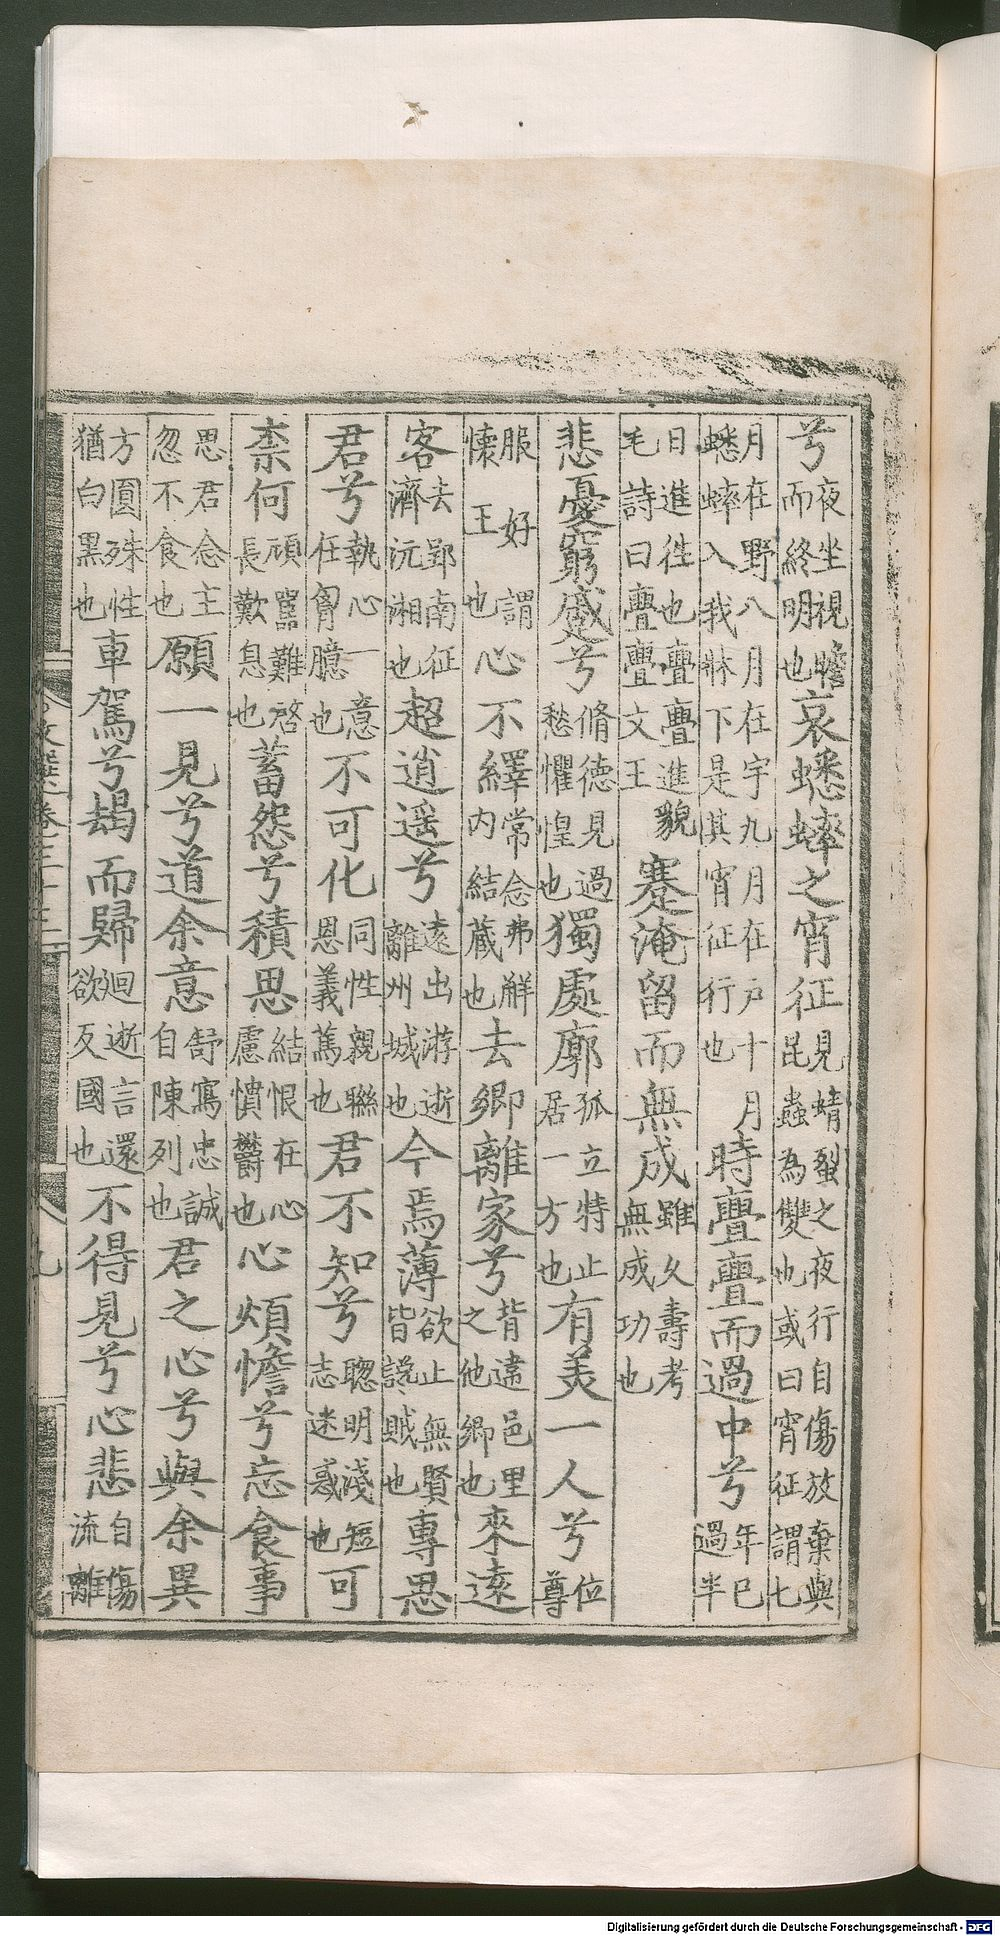 兮夜坐視蟾而終明也哀蟋蟀之宵征見蜻蛚之夜行自傷放棄與昆蟲為雙也或曰宵征謂七
月在野八月在宇九月在戶十月蟋蟀入我牀下是其宵征行也時亹亹而過中兮年已過半
日進徃也亹亹進貌毛詩曰亹亹文王蹇淹留而無成雖久壽考無成功也
悲憂窮蹙兮脩德見過愁懼惶也獨處廓孤立特止居一方也有美一人兮位尊
服好謂懐王也心不繹常念弗解内結藏也去鄉離家兮背違邑里之他鄉也來遠
客去郢南征濟沅湘也超逍遥兮遠出游逝離州城也今焉薄欲止無賢皆讒賊也專思
君兮執心一意任胷臆也不可化同性親聯恩義篤也君不知兮聰明淺短志迷惑也可
柰何頑嚚難啓長歎息也蓄怨兮積思結恨在心慮憤鬱也心煩憺兮忘食事
思君念主忽不食也願一見兮道余意舒寫忠誠自陳列也君之心兮與余異
方圓殊性猶白黑也車駕兮朅而歸廻逝言還欲反國也不得見兮心悲自傷流離
文選卷三十三
九
Digitalisierung gefördert durch die Deutsche Forschungsgemeinschaft - DFG